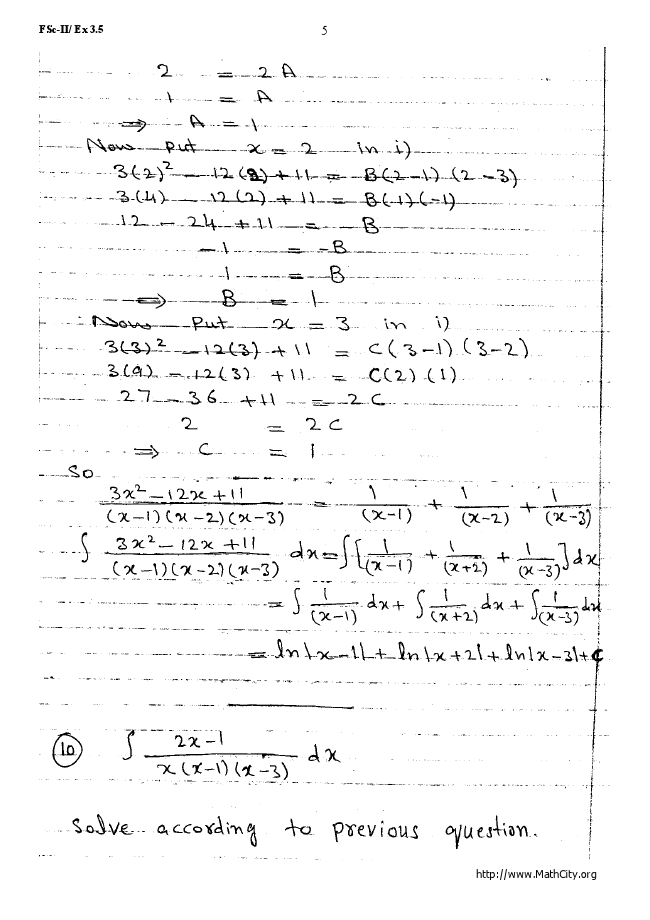 FSc-II/ Ex 3.5
5
2 = 2A
1 = A
⇒ A = 1
Now put x = 2 in i)
3(2)² - 12(2) + 11 = B(2-1)(2-3)
3(4) - 12(2) + 11 = B(1)(-1)
12 - 24 + 11 = -B
-1 = -B
1 = B
⇒ B = 1
Now put x = 3 in i)
3(3)² - 12(3) + 11 = C(3-1)(3-2)
3(9) - 12(3) + 11 = C(2)(1)
27 - 36 + 11 = 2C
2 = 2C
⇒ C = 1
So
(3x² - 12x + 11)/((x-1)(x-2)(x-3)) = 1/(x-1) + 1/(x-2) + 1/(x-3)
∫ (3x² - 12x + 11)/((x-1)(x-2)(x-3)) dx = ∫[1/(x-1) + 1/(x+2) + 1/(x-3)]dx
= ∫ 1/(x-1) dx + ∫ 1/(x+2) dx + ∫ 1/(x-3) dx
= ln|x-1| + ln|x+2| + ln|x-3| + c
(10) ∫ (2x-1)/(x(x-1)(x-3)) dx
Solve according to previous question.
http://www.MathCity.org